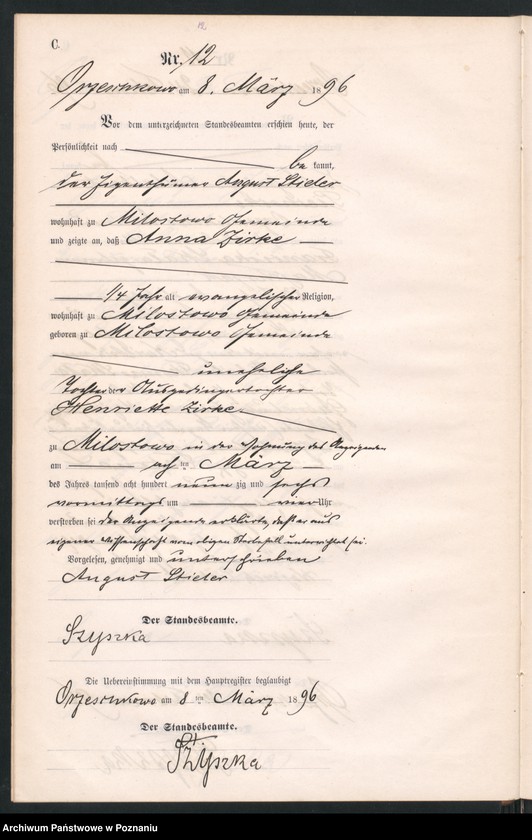 12
C.
Nr. 12
Orzeschkowo am 8. März 1896
Vor dem unterzeichneten Standesbeamten erschien heute, der
Persönlichkeit nach
be kannt,
der Eigenthümer August Stieler
wohnhaft zu Milostowo Gemeinde
und zeigte an, daß Anna Zirke
1/4 Jahr alt evangelischer Religion,
wohnhaft zu Milostowo Gemeinde
geboren zu Milostowo Gemeinde
uneheliche
Tochter der Ausgedingertochter
Henriette Zirke
zu Milostowo in der Wohnung des Anzeigenden
am achten März
des Jahres tausend acht hundert neunzig und sechs
vormittags um vier Uhr
verstorben sei der Anzeigende erklärte, daß er aus
eigener Wissenschaft vom obigen Sterbefall unterrichtet sei.
Vorgelesen, genehmigt und unterschrieben
August Stieler
Der Standesbeamte.
Szyszka
Die Uebereinstimmung mit dem Hauptregister beglaubigt
Orzeschkowo am 8ten März 1896
Der Standesbeamte.
Szyszka
Archiwum Państwowe w Poznaniu